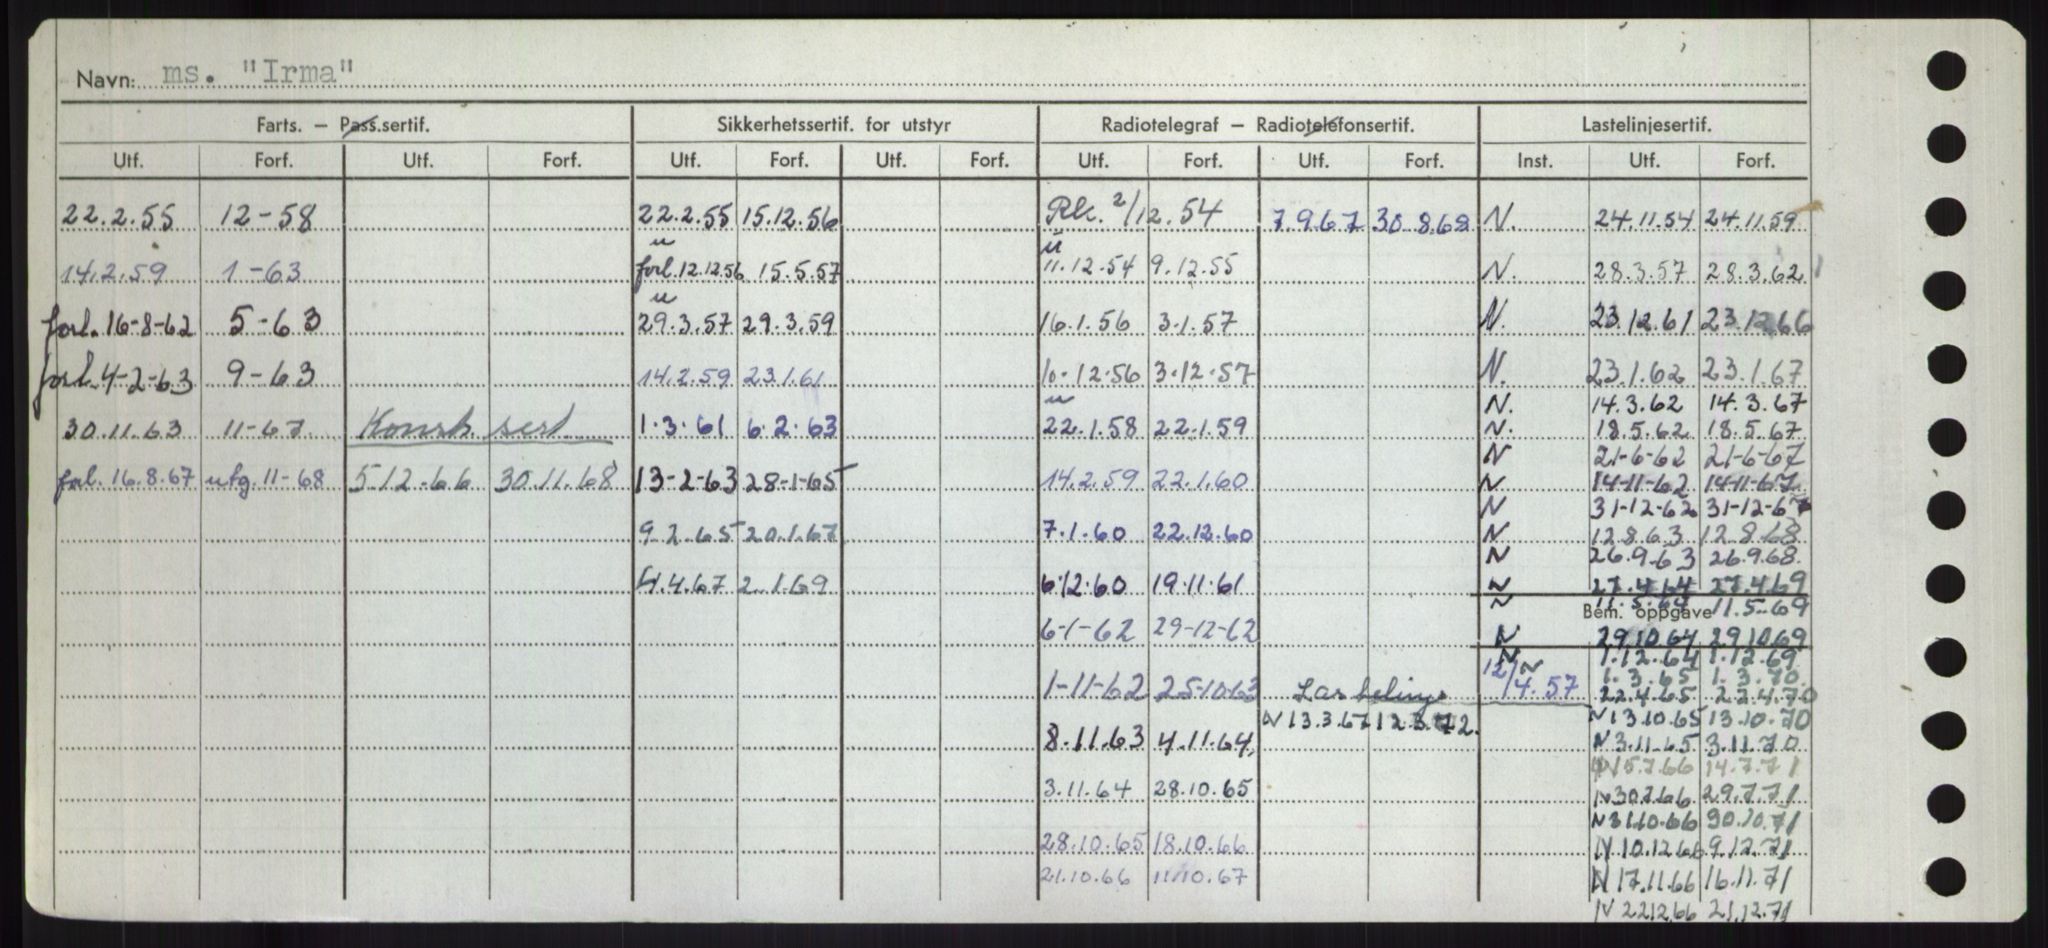 Navn: ms. "Irma"
Farts. – Pass.sertif. Sikkerhetssertif. for utstyr Radiotelegraf – Radiotelefonsertif. Lastelinjesertif.
Utf. Forf. Utf. Forf. Utf. Forf. Utf. Forf. Utf. Forf. Utf. Forf. Inst. Utf. Forf.
22.2.55 12-58 22.2.55 15.12.56 Rk. 2/12.54 7.9.67 30.8.68 N. 24.11.54 24.11.59
14.2.59 1-63 forl. 12.12.56 15.5.57 11.12.54 9.12.55 N. 28.3.57 28.3.62
forl. 16-8-62 5-63 29.3.57 29.3.59 16.1.56 3.1.57 N. 23.12.61 23.12.66
forl. 4-2-63 9-63 14.2.59 23.1.61 10.12.56 3.12.57 N. 23.1.62 23.1.67
N. 14.3.62 14.3.67
30.11.63 11-67 Konstr. sert. 1.3.61 6.2.63 22.1.58 22.1.59 N. 18.5.62 18.5.67
N 21-6-62 21-6-67
forl. 16.8.67 utg. 11-68 5.12.66 30.11.68 13-2-63 28-1-65 14.2.59 22.1.60 N 14-11-62 14-11-67
N 31-12-62 31-12-67
9.2.65 20.1.67 7.1.60 22.12.60 N 12.8.63 12.8.68
N 26.9.63 26.9.68
4.4.67 2.1.69 6.12.60 19.11.61 N 27.4.64 27.4.69
N 11.5.64 11.5.69
Bem. oppgave
6-1-62 29-12-62 N 29.10.64 29.10.69
N 1.12.64 1.12.69
N 1.3.65 1.3.70
1-11-62 25-10-63 12/4.57 22.4.65 22.4.70
N 13.3.67 12.3.72. N 13.10.65 13.10.70
8.11.63 4.11.64 N 3.11.65 3.11.70
N 15.7.66 14.7.71
3.11.64 28.10.65 N 30.7.66 29.7.71
N 31.10.66 30.10.71
28.10.65 18.10.66 N 10.12.66 9.12.71
21.10.66 11.10.67 N 17.11.66 16.11.71
N 22.12.66 21.12.71